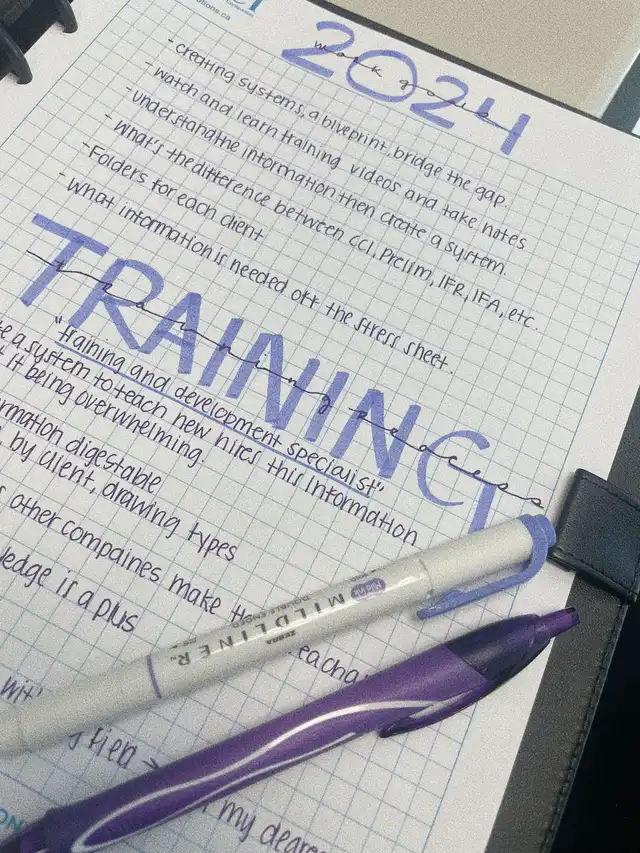 utions.ca
2024
work goals
-creating systems, a blueprint, bridge the gap.
-watch and learn training videos and take notes
-understand the information then create a system.
-What's the difference between CCI, Prelim, IFR, IFA, etc.
-Folders for each client
-What information is needed off the stress sheet.
TRAINING
training process
"training and development specialist"
te a system to teach new hires this information
t it being overwhelming.
rmation digestable
by client, drawing types
other compaines make
ledge is a plus
eacha
ZEBRA
MILDLINER™
DOUBLE ENDED
wit
my degree